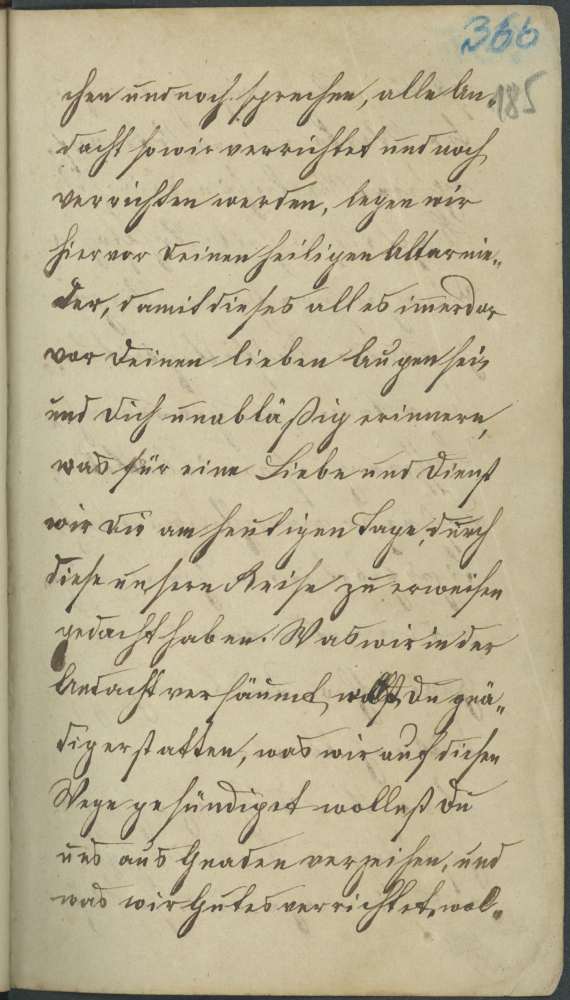 366
185
chen und noch sprechen, alle An-
dacht so wir verrichtet und noch
verrichten werden, legen wir
hier vor deinen heiligen Altar nie-
der, damit dieses alles immerdar
vor deinen lieben Augen sei,
und dich unabläßig erinnern,
was für eine Liebe und Dienst
wir dir am heutigen Tage, durch
diese unsern Reise zu erweisen
gedacht haben. Was wir in der
Andacht versäumt, wollst du gnä-
dig erstatten, was wir auf diesen
Wege gesündiget wollest du
uns aus Gnaden verzeihen, und
was wir Gutes verrichtet, wol-